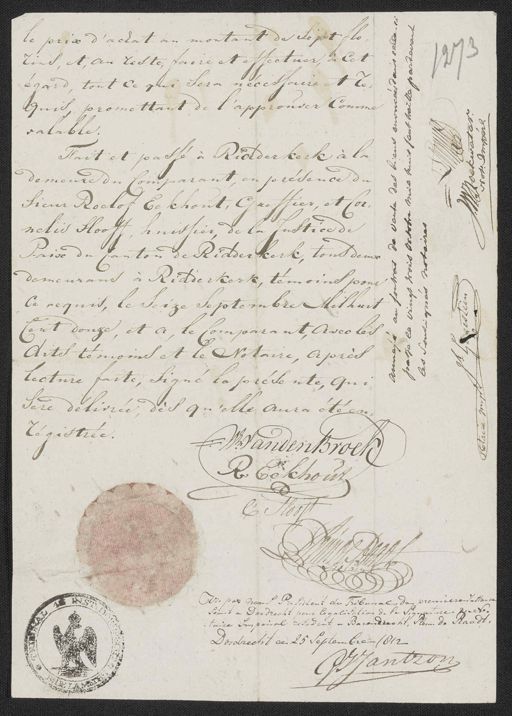 le prix d'achat au montant de Sept flo-
rins, et, au reste, faire et effectuer, à cet
égard, tout ce qui sera nécessaire et re-
quis, promettant de l'approuver comme
valable.
Fait et passé à Ridderkerk à la
demeure du Comparant, en présence du
Sieur Roelof Eekhout, Greffier, et Cor-
nelis Slooff huissier, de la Justice de
Paix du Canton de Ridderkerk, tous deux
demeurans à Ridderkerk, témoins pour
ce requis, le Seize Septembre Milhuit
Cent douze, et a le Comparant, avec les
dits témoins et le Notaire, après
lecture faite, signé la présente, qui
sera délivrée, dès qu'elle aura été en-
régistrée.
VandenBroek
R. Eekhout
C. Slooff
Vu par nous Président du Tribunal de première instance
Séant à Dordrecht pour légalisation de la Signature du No-
taire Impérial résident à Barendrecht,
Dordrecht ce 25 Septembre 1812
Jantzon
1273
annexé au procès de vente des biens énoncés dans celui-ci
passé le vingt trois octobre mil huit cent douze pardevant
les soussignés notaires
TRIBUNAL DE